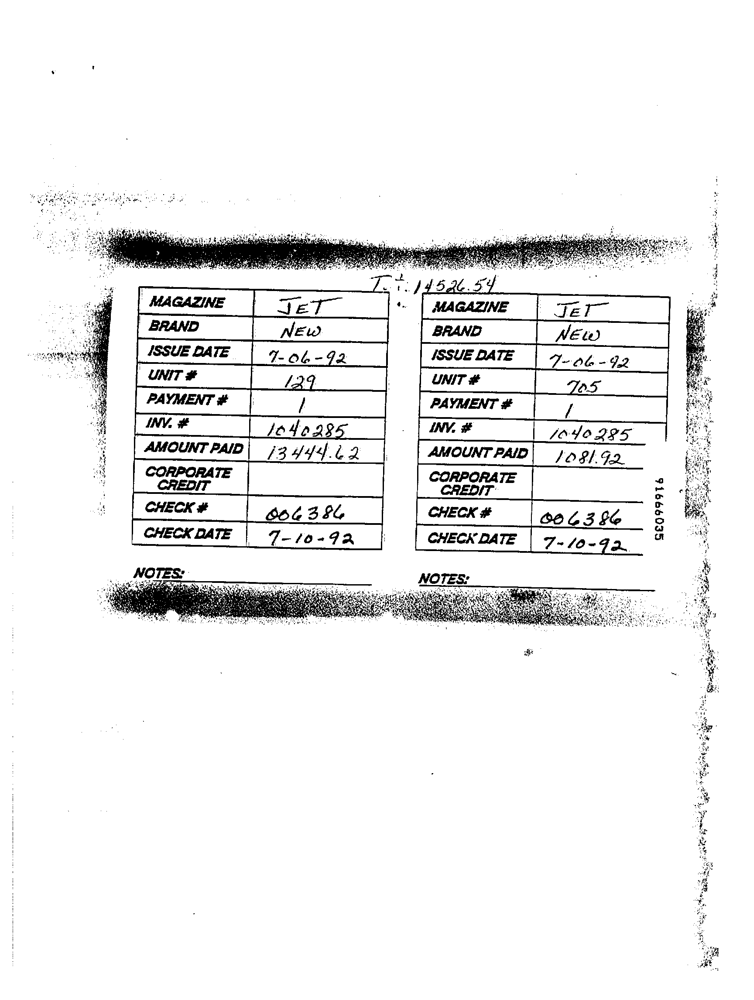 T.t. 14526.54
MAGAZINE JET
BRAND NEW
ISSUE DATE 7-06-92
UNIT # 129
PAYMENT # 1
INV. # 1040285
AMOUNT PAID 13444.62
CORPORATE
CREDIT
CHECK # 006386
CHECK DATE 7-10-92
NOTES:
MAGAZINE JET
BRAND NEW
ISSUE DATE 7-06-92
UNIT # 705
PAYMENT # 1
INV. # 1040285
AMOUNT PAID 1081.92
CORPORATE
CREDIT
CHECK # 006386
CHECK DATE 7-10-92
NOTES:
91666035